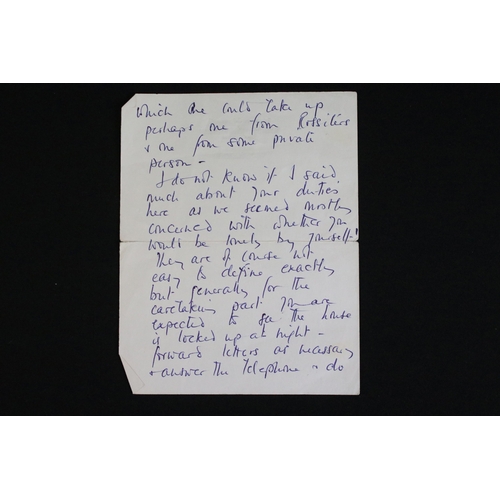 which one could take up
perhaps one from Rossiters
& one from some private
person -
I do not know if I said
much about your duties
here as we seemed mostly
concerned with whether you
would be lonely by yourself!
They are of course not
easy to define exactly
but generally for the
caretaking part you are
expected to see the house
is locked up at night -
forward letters as necessary
& answer the telephone & do